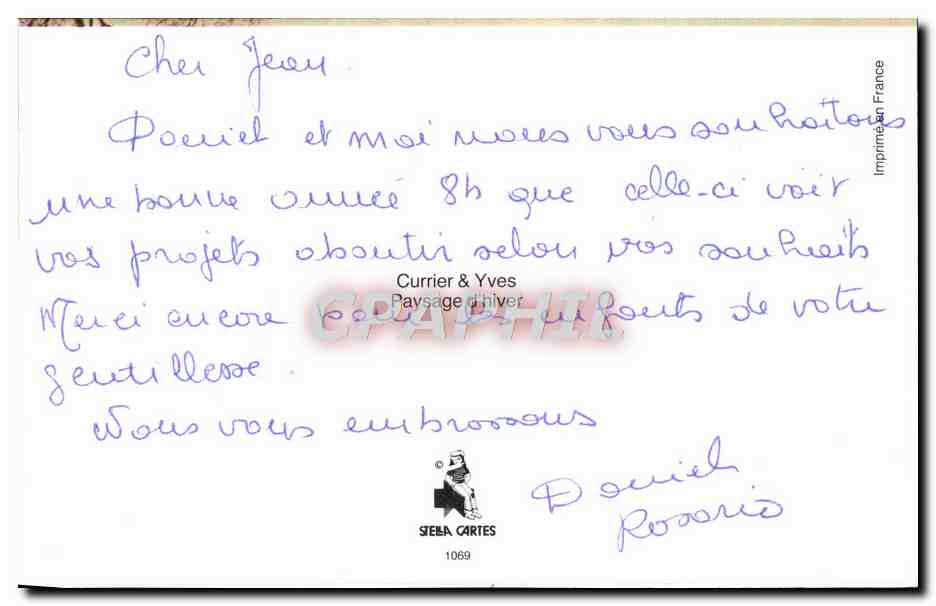 Cher Jean.
Daniel et moi nous vous souhaitons
une bonne année 8h que celle-ci voit
vos projets aboutir selon vos souhaits
Merci encore pour les enfants de votre
gentillesse.
Nous vous embrassons
Daniel
Rosario
Imprimé en France
Currier & Yves
Paysage d'hiver
CPAPHIL
©
STELLA CARTES
1069